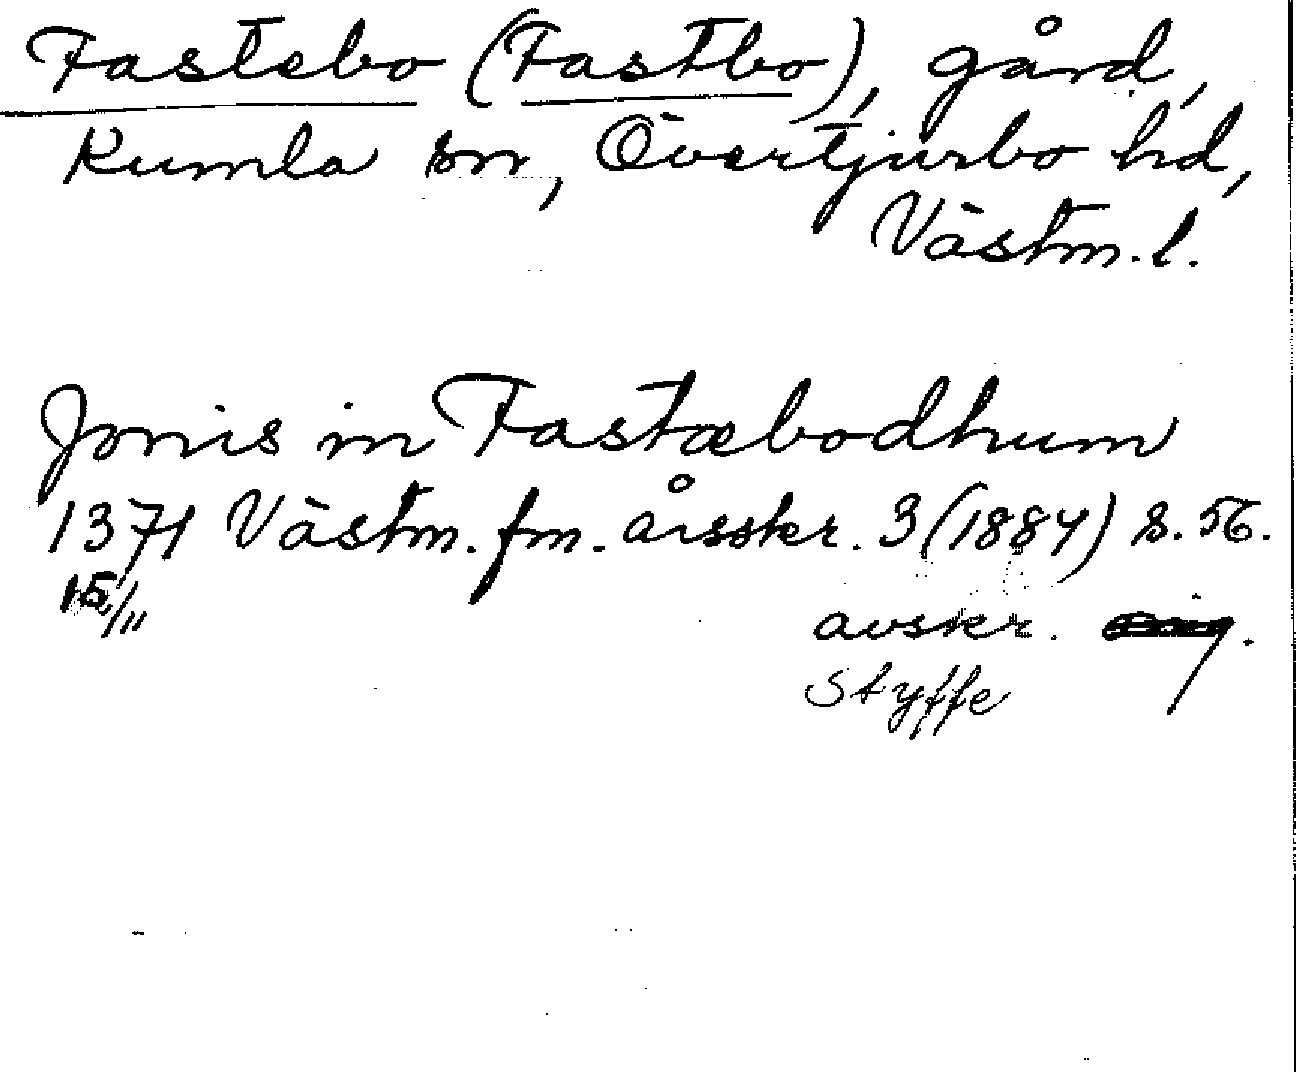 Fastebo (Fastbo), gård,
Kumla sn, Övertjurbo hd,
Västm. l.
Jonis in Fastæbodhum
1371 Västm. fm. årsskr. 3 (1884) s. 56.
15/11
avskr.
Styffe